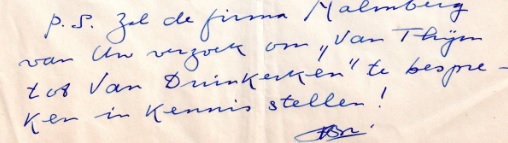 P.S. Zal de firma Malmberg
van Uw verzoek om „Van Thijm
tot Van Duinkerken" te bespre-
ken in kennis stellen!